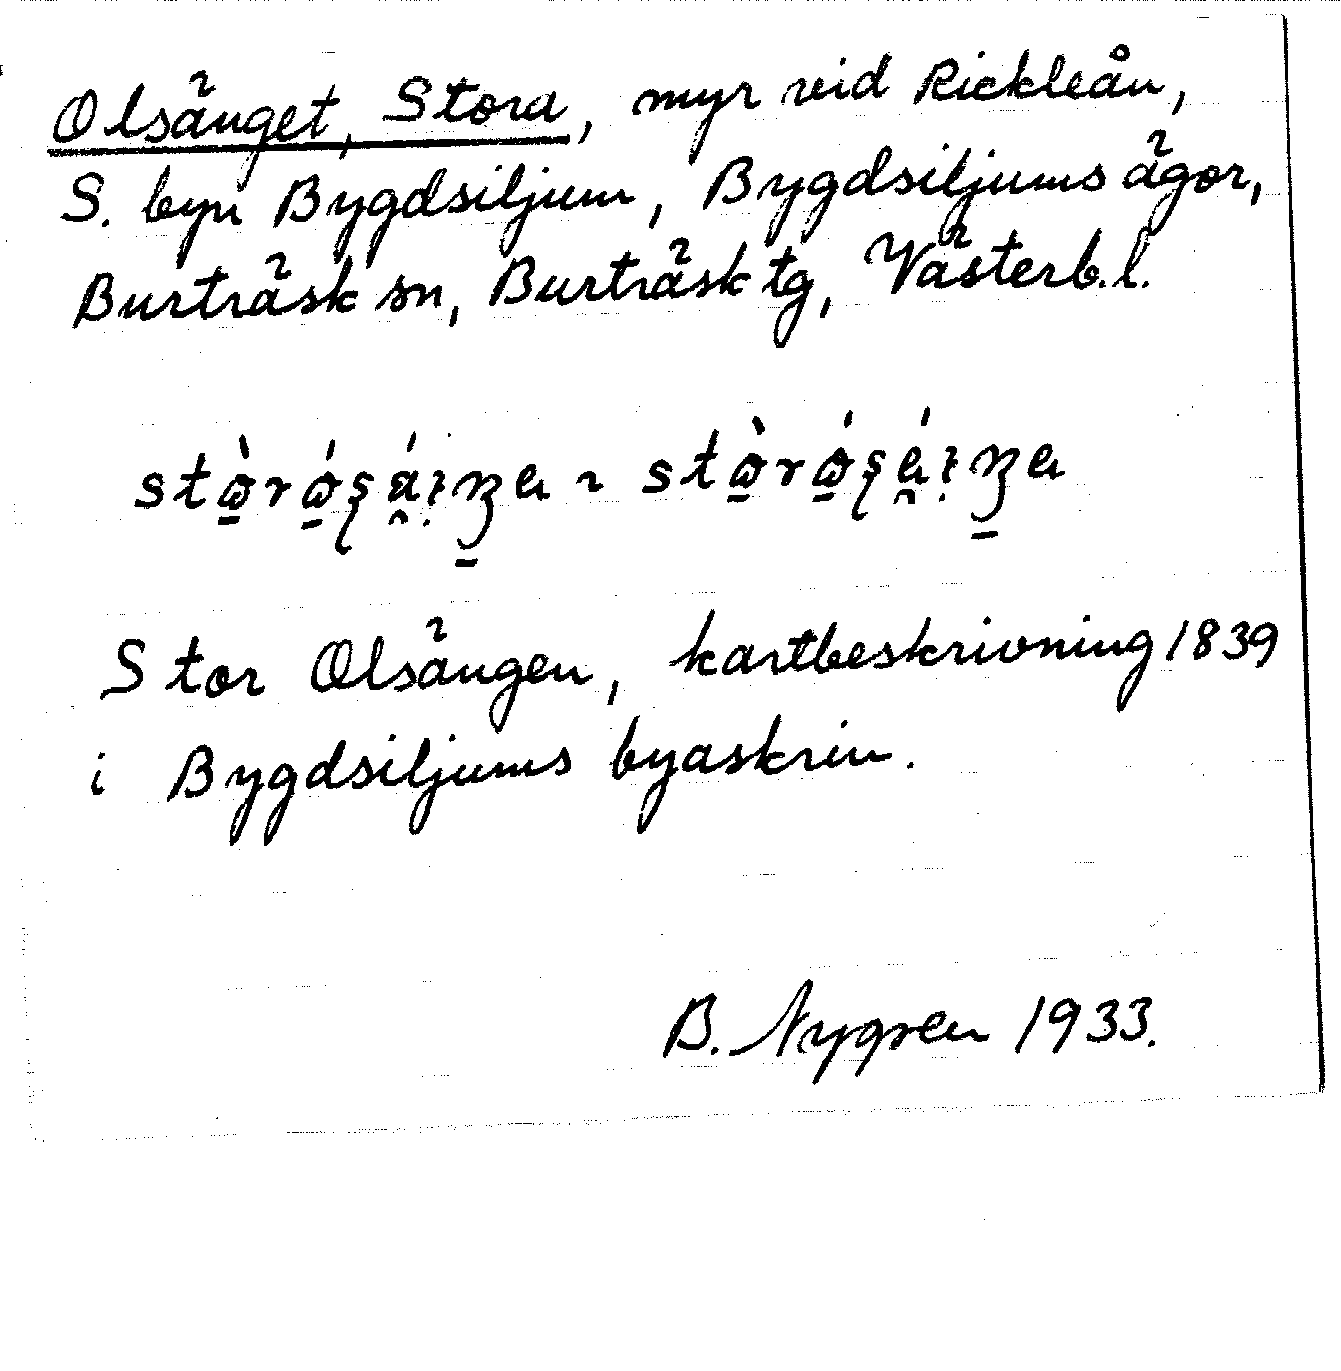 Olsänget, Stora, myr vid Rickleån,
S. byn Bygdsiljum, Bygdsiljums ägor,
Burträsk sn, Burträsk tg, Västerb.l.
Stor Olsängen, kartbeskrivning 1839
i Bygdsiljums byaskrin.
B. Nygren 1933.